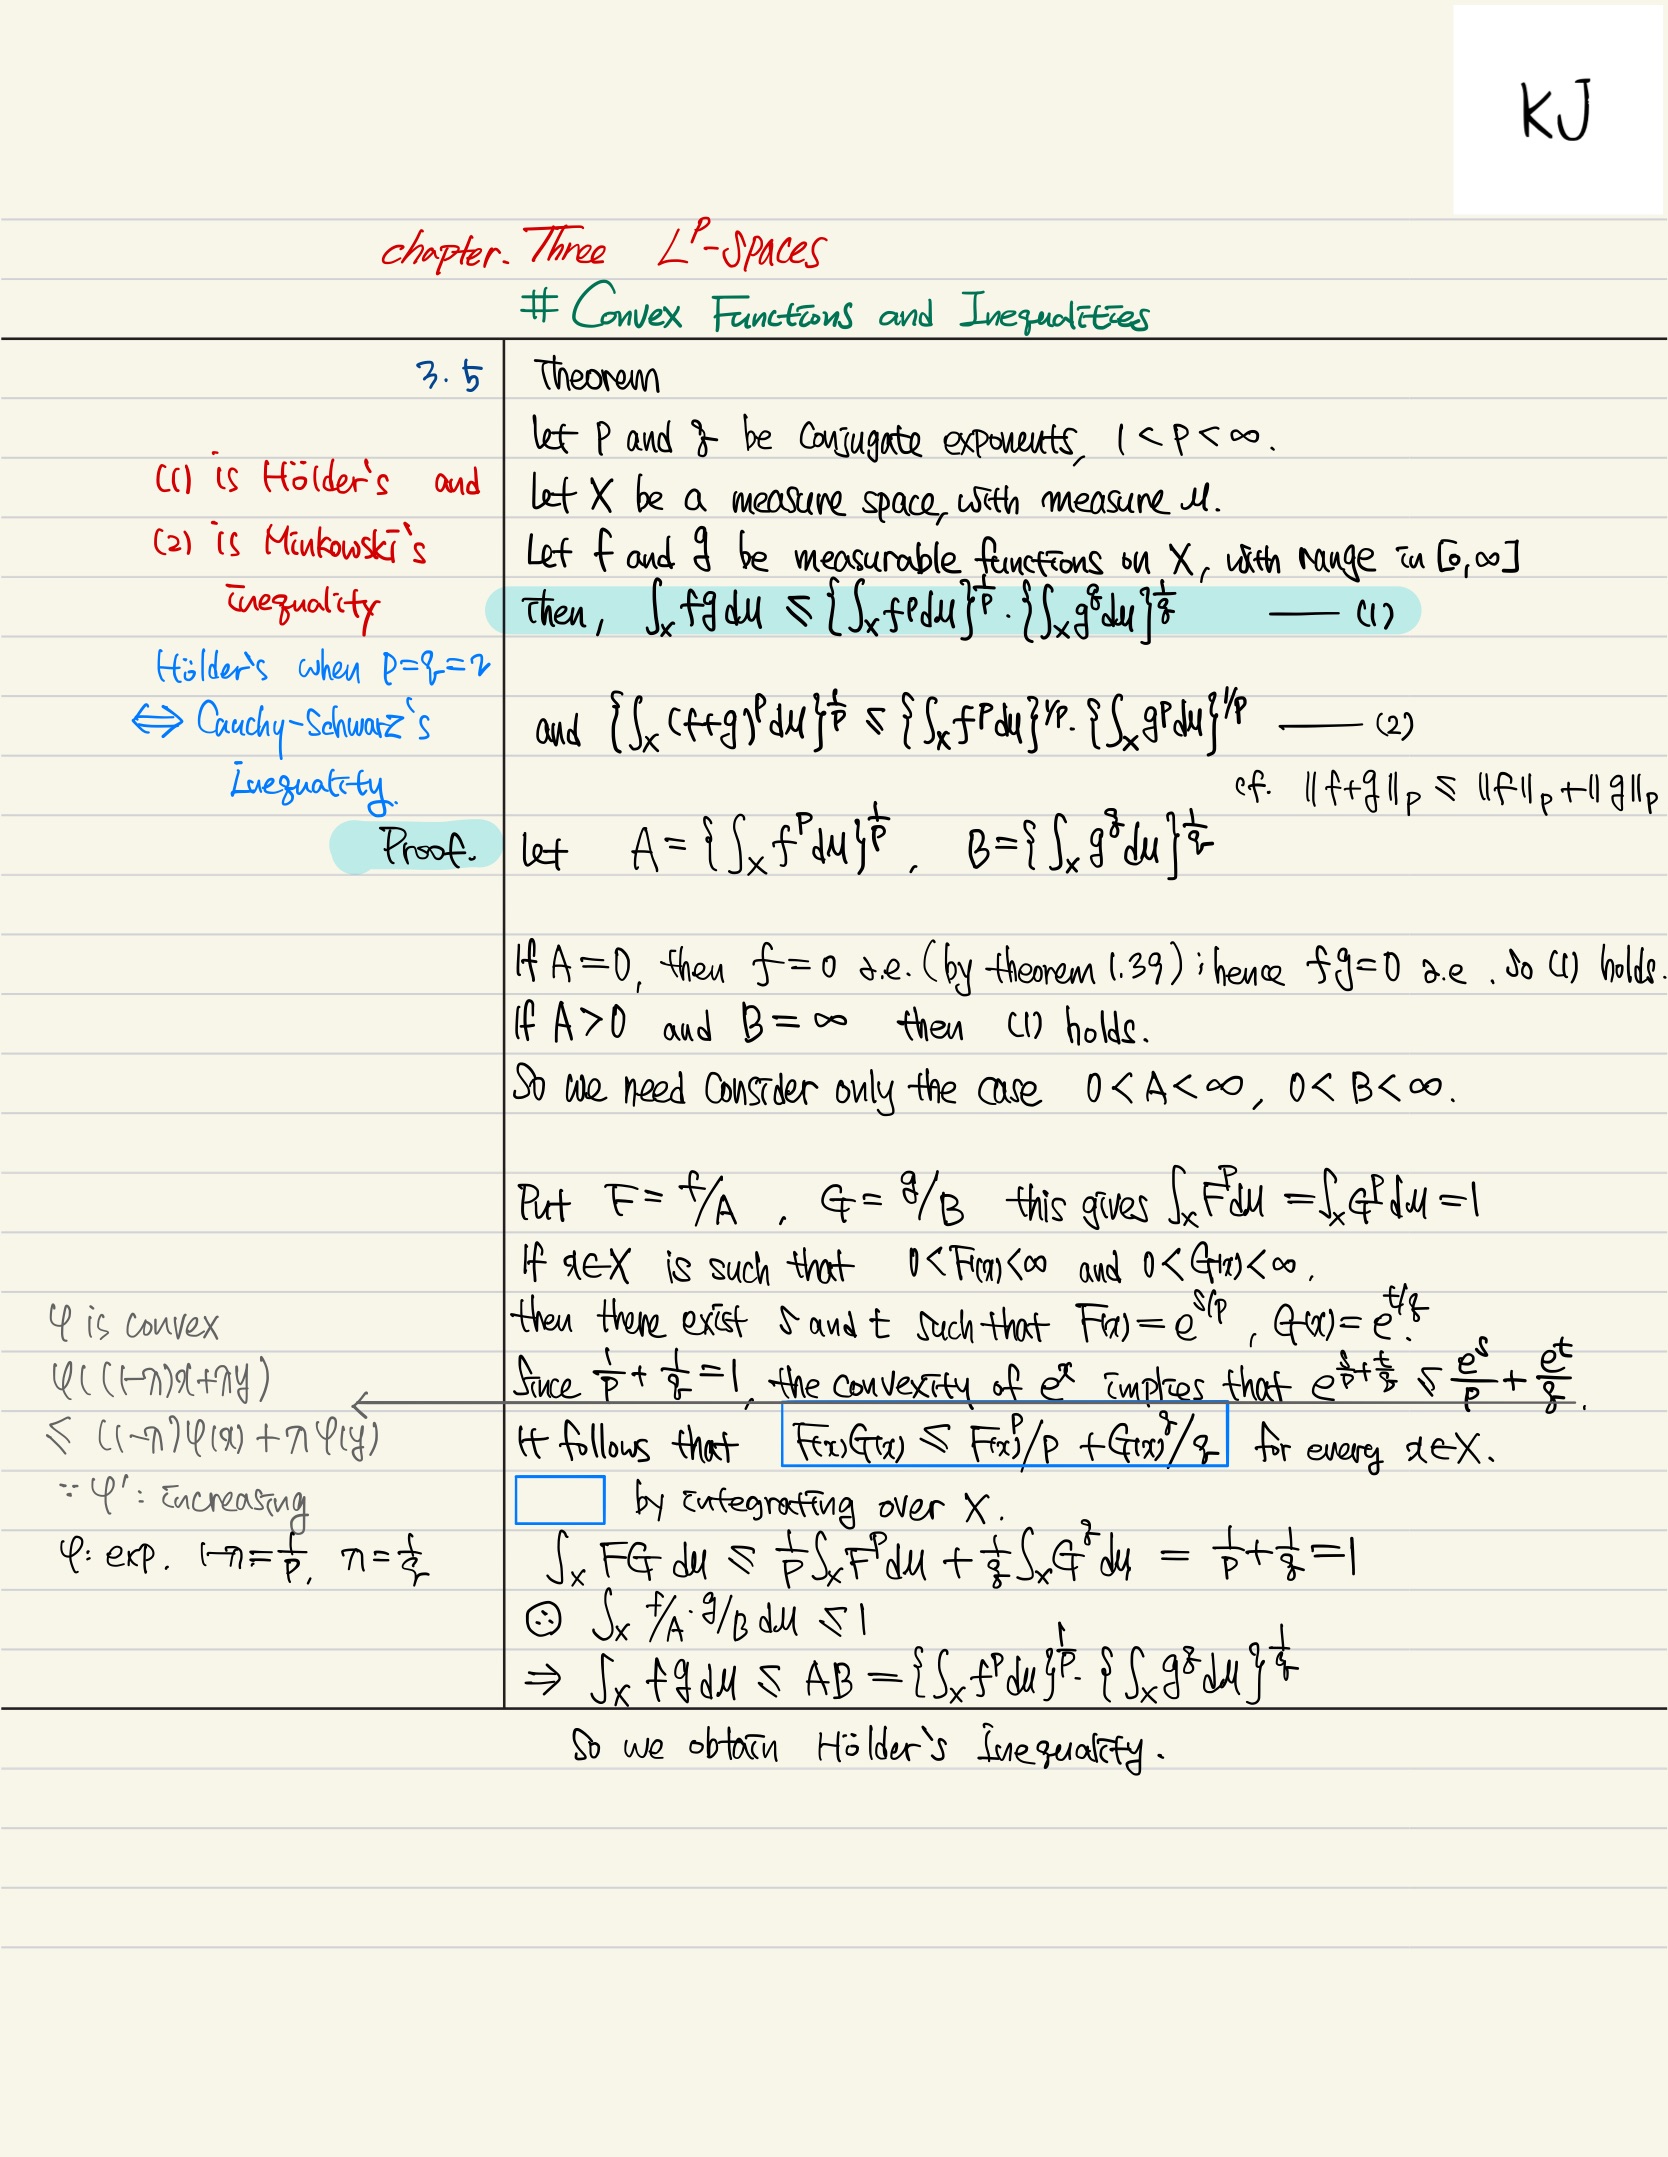 KJ
chapter. Three L^p-spaces
# Convex Functions and Inequalities
3.5 Theorem
Let p and q be conjugate exponents, 1 < p < ∞.
(1) is Hölder's and
Let X be a measure space, with measure μ.
(2) is Minkowski's
Let f and g be measurable functions on X, with range in [0,∞]
inequality
Then, ∫_X fg dμ ≤ {∫_X f^p dμ}^{1/p} · {∫_X g^q dμ}^{1/q} —— (1)
Hölder's when p=q=2
⇔ Cauchy-Schwarz's
Inequality.
and {∫_X (f+g)^p dμ}^{1/p} ≤ {∫_X f^p dμ}^{1/p} · {∫_X g^p dμ}^{1/p} —— (2)
cf. ||f+g||_p ≤ ||f||_p + ||g||_p
Proof. Let A = {∫_X f^p dμ}^{1/p}, B = {∫_X g^q dμ}^{1/q}
If A=0, then f=0 a.e. (by theorem 1.39) ; hence fg=0 a.e. So (1) holds.
If A>0 and B=∞ then (1) holds.
So we need consider only the case 0<A<∞, 0<B<∞.
Put F = f/A, G = g/B this gives ∫_X F^p dμ = ∫_X G^p dμ = 1
If x∈X is such that 0<F(x)<∞ and 0<G(x)<∞.
then there exist s and t such that F(x) = e^{s/p}, G(x) = e^{t/q}.
Since 1/p + 1/q = 1, the convexity of e^x implies that e^{s/p + t/q} ≤ e^s/p + e^t/q.
φ is convex
φ((1-λ)x+λy)
≤ (1-λ)φ(x) + λφ(y)
∵ φ' : increasing
φ: exp. 1-λ = 1/p, λ = 1/q
It follows that F(x)G(x) ≤ F(x)^p/p + G(x)^q/q for every x∈X.
by integrating over X.
∫_X FG dμ ≤ 1/p ∫_X F^p dμ + 1/q ∫_X G^q dμ = 1/p + 1/q = 1
∫_X f/A · g/B dμ ≤ 1
⇒ ∫_X fg dμ ≤ AB = {∫_X f^p dμ}^{1/p} · {∫_X g^q dμ}^{1/q}
So we obtain Hölder's Inequality.